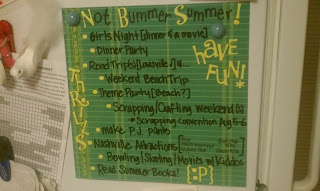 Not Bummer Summer!
Girls Night [dinner & a movie]
Dinner Party
Road Trip(s) [Louisville]
Weekend Beach Trip
Theme Party [Beach?]
Scrapping/Crafting weekend(s)
Scrapping Convention Aug 5-6
make P.J. pants
Nashville Attractions
Bowling/Skating/Movies w/ Kiddos
Read Summer Books!
have FUN!*
{:P}